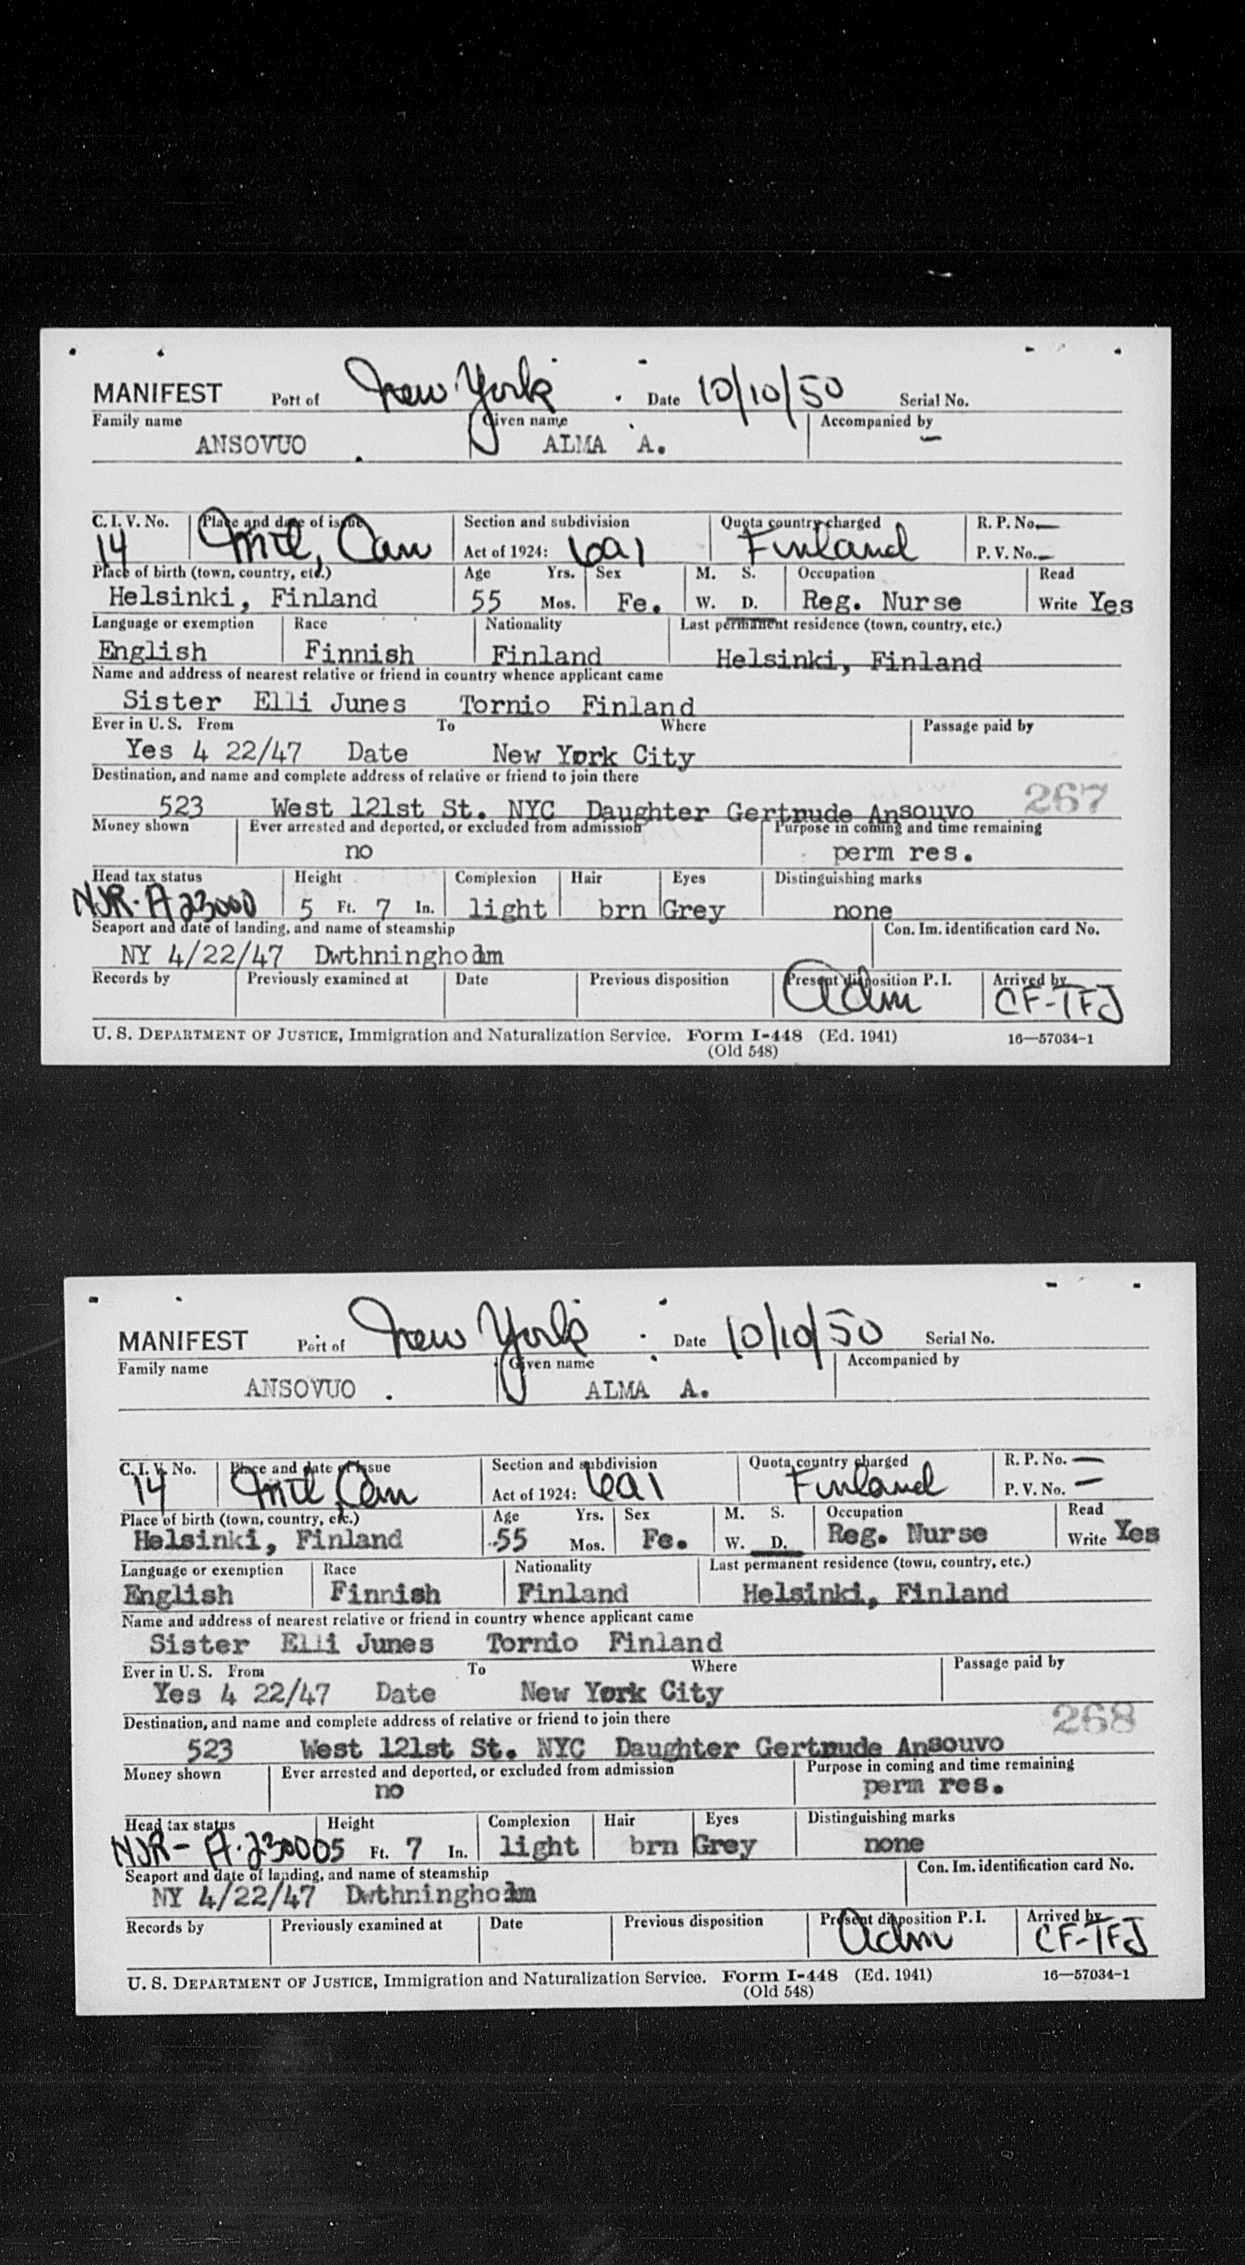 MANIFEST Port of New York Date 10/10/50 Serial No.
Family name Given name Accompanied by
ANSOVUO ALMA A. —
C. I. V. No. Place and date of issue Section and subdivision Quota country charged R. P. No. —
14 Mtl, Can Act of 1924: 6a1 Finland P. V. No. —
Place of birth (town, country, etc.) Age Yrs. Sex M. S. Occupation Read
Helsinki, Finland 55 Mos. Fe. W. D. Reg. Nurse Write Yes
Language or exemption Race Nationality Last permanent residence (town, country, etc.)
English Finnish Finland Helsinki, Finland
Name and address of nearest relative or friend in country whence applicant came
Sister Elli Junes Tornio Finland
Ever in U. S. From To Where Passage paid by
Yes 4 22/47 Date New York City
Destination, and name and complete address of relative or friend to join there
523 West 121st St. NYC Daughter Gertrude Ansouvo 267
Money shown Ever arrested and deported, or excluded from admission Purpose in coming and time remaining
no perm res.
Head tax status Height Complexion Hair Eyes Distinguishing marks
NJR-A23000 5 Ft. 7 In. light brn Grey none
Seaport and date of landing, and name of steamship Con. Im. identification card No.
NY 4/22/47 Dwthningholm
Records by Previously examined at Date Previous disposition Present disposition P. I. Arrived by
Adm CF-TFJ
U. S. DEPARTMENT OF JUSTICE, Immigration and Naturalization Service. Form I-448 (Ed. 1941) 16—57034-1
(Old 548)
MANIFEST Port of New York Date 10/10/50 Serial No.
Family name Given name Accompanied by
ANSOVUO . ALMA A.
C. I. V. No. Place and date of issue Section and subdivision Quota country charged R. P. No. —
14 Mtl Can Act of 1924: 6a1 Finland P. V. No. —
Place of birth (town, country, etc.) Age Yrs. Sex M. S. Occupation Read
Helsinki, Finland 55 Mos. Fe. W. D. Reg. Nurse Write Yes
Language or exemption Race Nationality Last permanent residence (town, country, etc.)
English Finnish Finland Helsinki, Finland
Name and address of nearest relative or friend in country whence applicant came
Sister Elli Junes Tornio Finland
Ever in U. S. From To Where Passage paid by
Yes 4 22/47 Date New York City
Destination, and name and complete address of relative or friend to join there 268
523 West 121st St. NYC Daughter Gertrude Ansouvo
Money shown Ever arrested and deported, or excluded from admission Purpose in coming and time remaining
no perm res.
Head tax status Height Complexion Hair Eyes Distinguishing marks
NJR-A-23000 5 Ft. 7 In. light brn Grey none
Seaport and date of landing, and name of steamship Con. Im. identification card No.
NY 4/22/47 Dwthningholm
Records by Previously examined at Date Previous disposition Present disposition P. I. Arrived by
Adm CF-TFJ
U. S. DEPARTMENT OF JUSTICE, Immigration and Naturalization Service. Form I-448 (Ed. 1941) 16—57034-1
(Old 548)